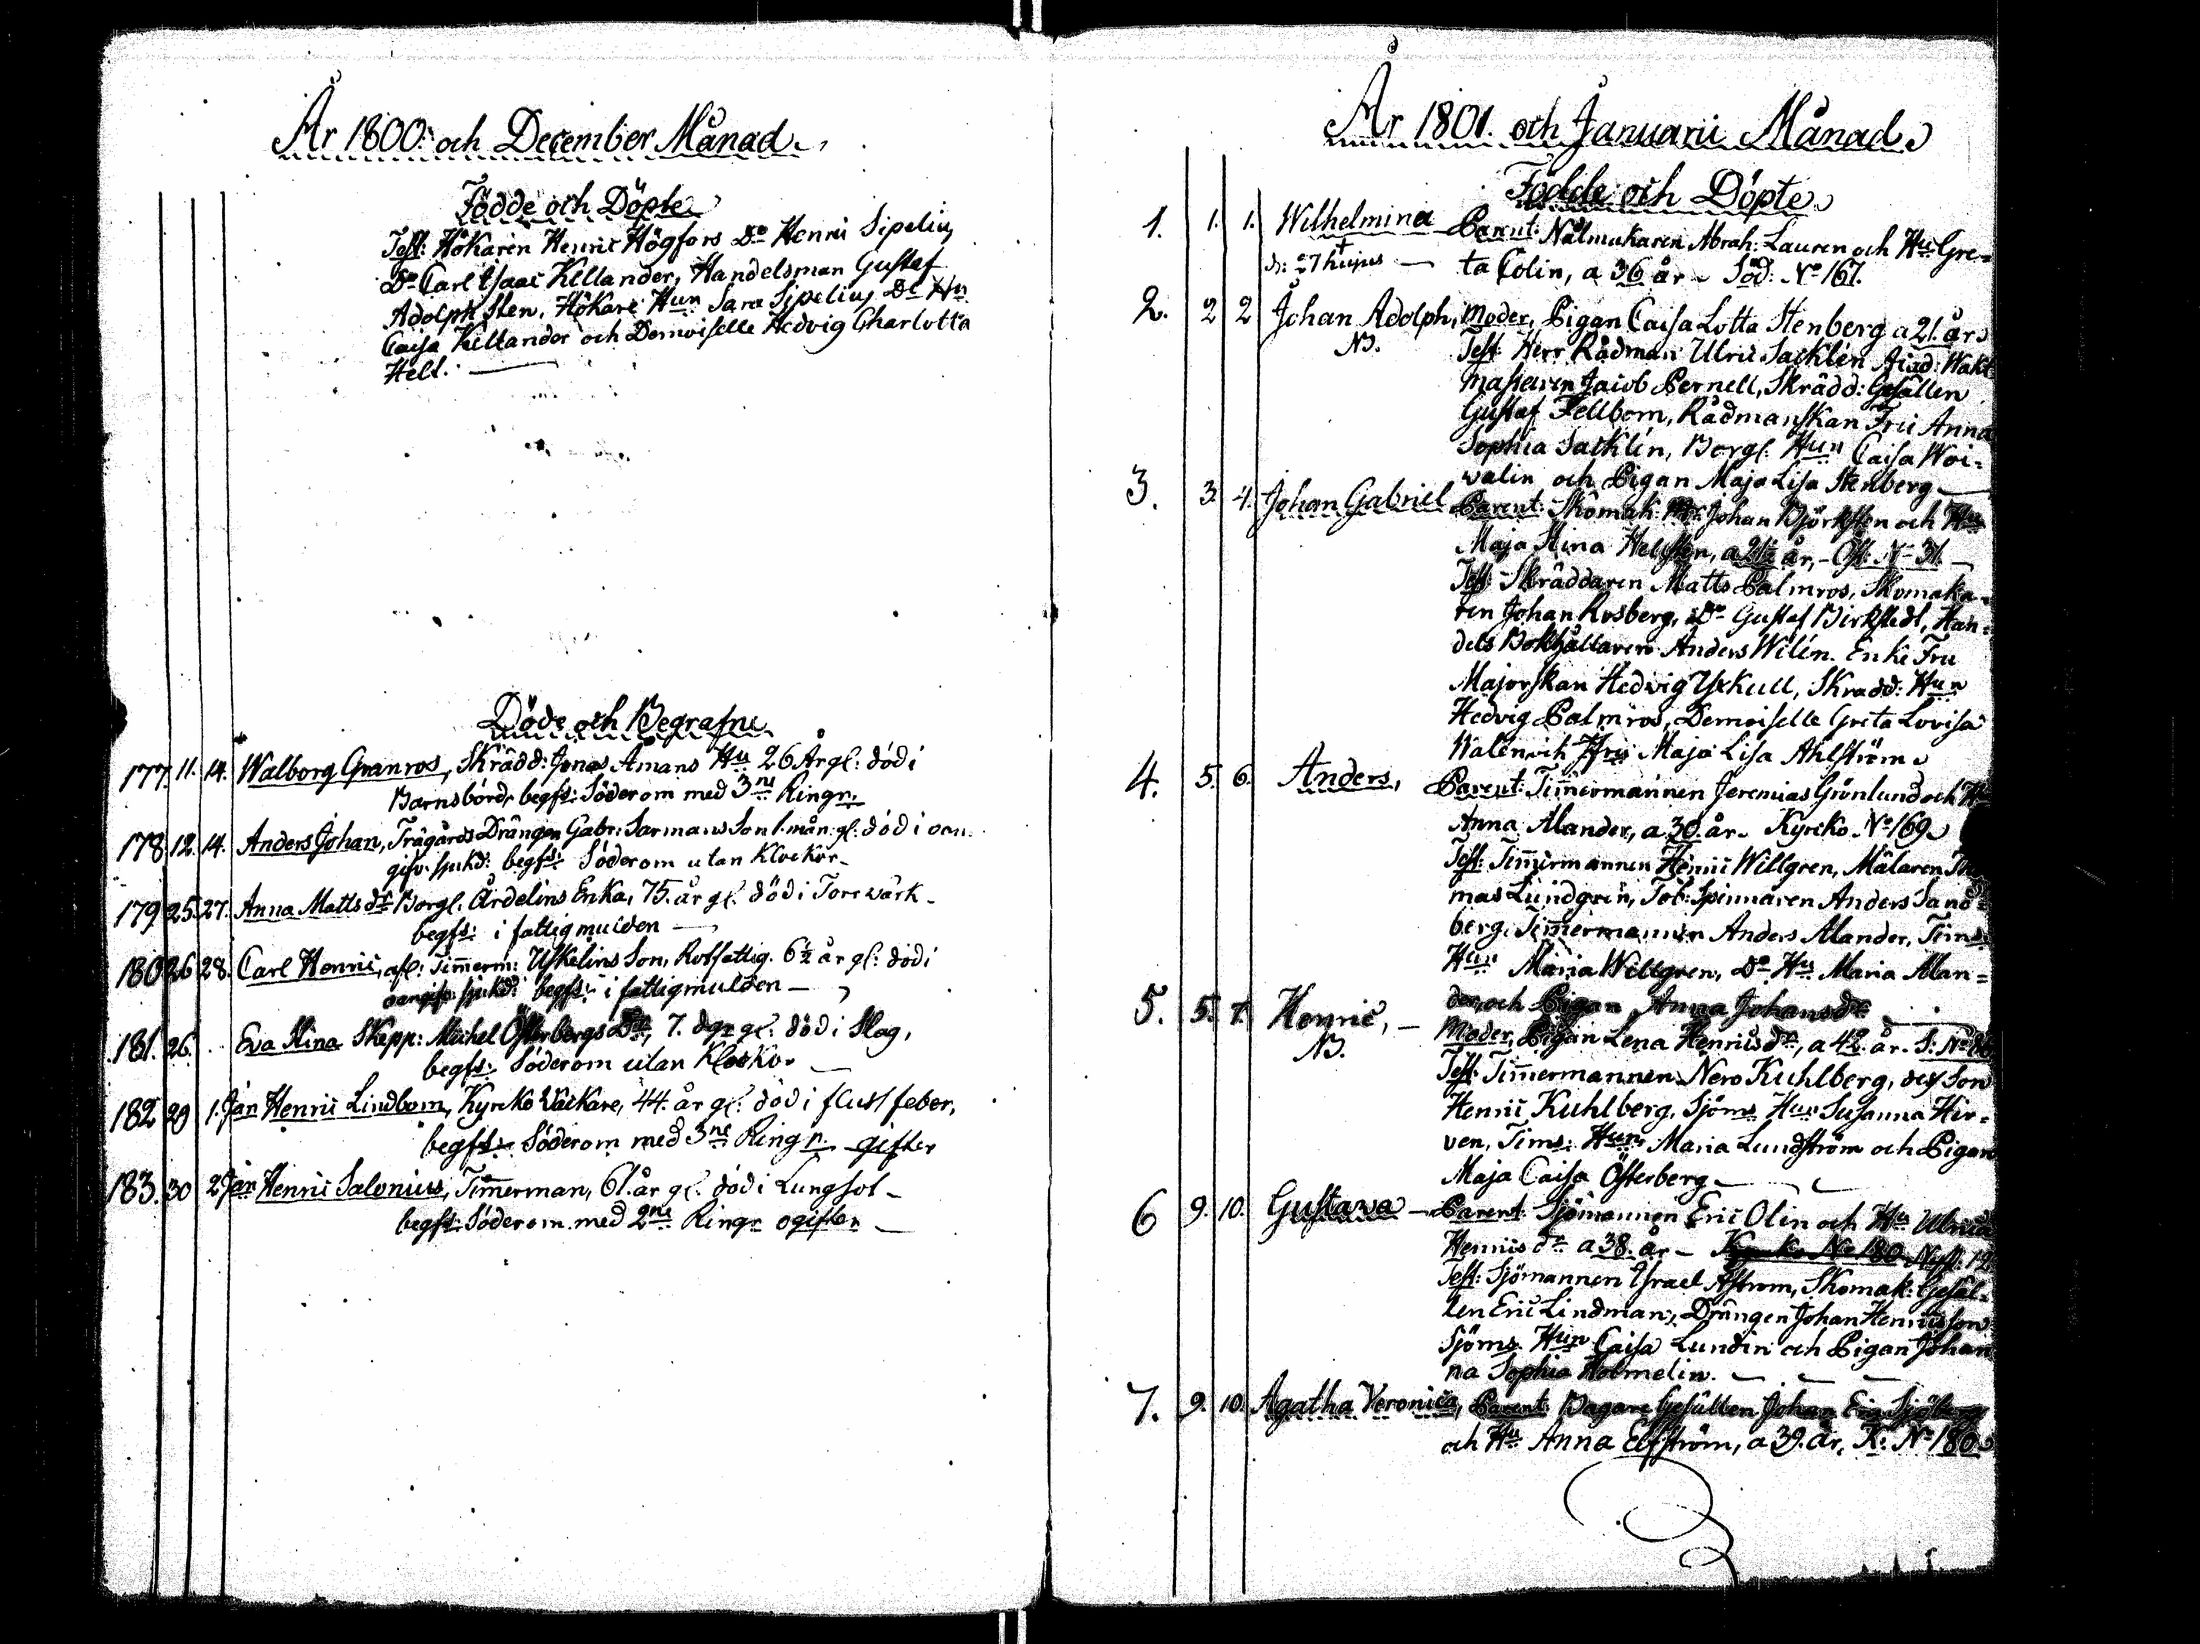 År 1800. och December Månad.
Födde och Döpte
Test: Hökaren Henric Högfors Do Henric Sipelius
Do Carl Isaac Killander, Handelsman Gustaf
Adolph Sten, Hökare Hun Sara Sipelius Do Hu
Caisa Killander och Demoiselle Hedvig Charlotta
Held.
Döde och Begrafne
177. 11. 14. Walborg Granros, Skrädd: Jonas Åmans Hu 26 År gl: död i
Barnsbörd, begfs: Söderom med 3ne Ringr.
178 12. 14. Anders Johan, Trägårds Drängen Gabr: Sarmans Son 1. mån: gl: död i oan-
gifv: sjukd: begfs: Söderom utan Klockor-
179 25. 27. Anna Matts dr Borgl: Ärdelins Enka, 75. år gl: död i Torrwärk-
begfs: i fattigmulden —
180 26 28. Carl Henric, afl: Timmerm: Uskelins Son, Rotfattig. 6½ år gl: död i
oangifv: sjukd: begfs: i fattigmulden —
181. 26. Eva Stina Skepp: Michel Österbergs Dr, 7. dgr gl: död i Slag,
begfs: Söderom utan Klockor
182 29 1. Jan Henric Lindbom, Kyrko Väckare, 44. år gl: död i fluss feber,
begfs: Söderom med 3ne Ringr. gifter
183. 30 2. Jan Henric Salonius, Timmerman, 61. år gl: död i Lungsot-
begfs: Söderom med 2ne Ringr ogifter —
År 1801. och Januarii Månad
Födde och Döpte
1. 1. 1. Wilhelmina Parent: Nålmakaren Abrah: Lauren och Hu Gre-
d: 27 hujus — ta Colin, a 36 år - Söd: No 167.
2. 2 2 Johan Adolph, Moder, Pigan Caisa Lotta Stenberg a 21. år
NB. Test: Herr Rådman Ulric Sacklén Acad: Wakt
mästaren Jacob Pernell, Skrädd: Gesällen
Gustaf Fellbom, Rådmanskan Fru Anna
Sophia Sacklén, Borgl: Hun Caisa Woi-
valin och Pigan Maja Lisa Stenberg —
3. 3. 4. Johan Gabriel Parent: Skomak: Johan Björksten och Hu
Maja Stina Helsten, a 21½ år, - Öst: No 31. —
Test: Skräddaren Matts Palmros, Skomaka-
ren Johan Rosberg, Do Gustaf Birkstedt, Han-
dels Bokhållaren Anders Wilén. Enke Fru
Majorskan Hedvig Yxkull, Skrädd: Hun
Hedvig Palmros, Demoiselle Greta Lovisa
Walén och Jfru Maja Lisa Ahlström
4. 5. 6. Anders, Parent: Timmermannen Jeremias Grönlund och Hu
Anna Alander, a 30. år. Kyrko No 169
Test: Timmermannen Henric Willgren, Målaren Tho
mas Lundgrén, Tob: Spinnaren Anders Sand-
berg, Timmermannen Anders Alander, Tims:
Hun Maria Willgren, Do Hu Maria Alan-
der, och Pigan Anna Johansdr
5. 5. 7. Henric, — Moder, Pigan Lena Henricsdr, a 42. år. S: No
NB. Test: Timmermannen Nero Kuhlberg, dess Son
Henric Kuhlberg, Sjöms Hun Susanna Hir-
ven, Tims: Hun Maria Lundström och Pigan
Maja Caisa Österberg —
6 9. 10. Gustava — Parent: Sjömannen Eric Olin och Hu Ulrica
Henricsdr a 38. år — Kyrko No 180 Nyst: 12
Test: Sjömannen Israel Åström, Skomak: Gesäl-
len Eric Lindman, Drängen Johan Henricsson
Sjöms Hun Caisa Lundin och Pigan Johan
na Sophia Holmelin. —
7. 9. 10. Agatha Veronica, Parent: Bagare Gesällen Johan Eric Sjöberg
och Hu Anna Elfström, a 39. år, K: No 180.